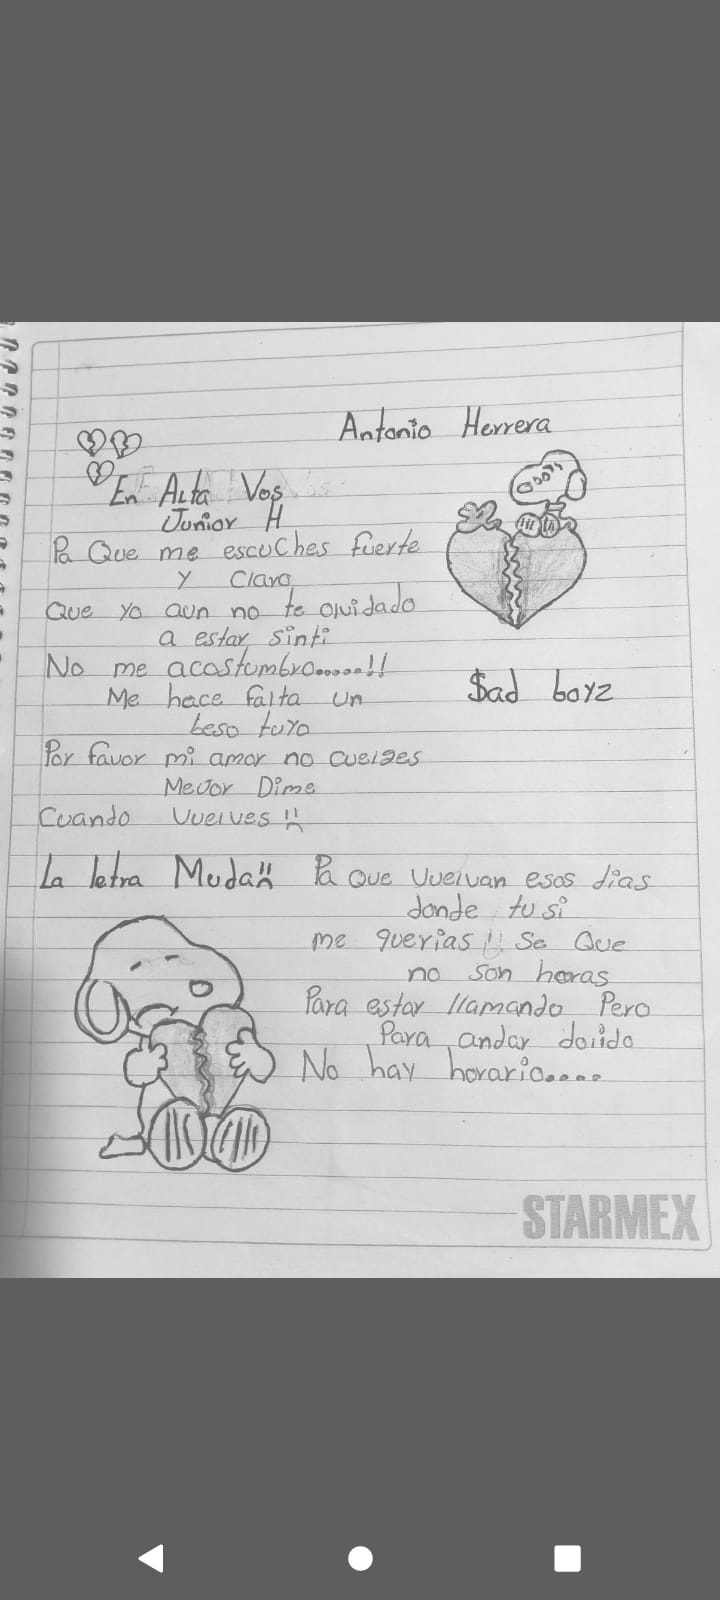 Antonio Herrera
En Alta Vos
Junior H
Pa Que me escuches fuerte
y Claro
Que yo aun no te olvidado
a estar sinti
No me acostumbro.....!!
Me hace falta un
beso tuyo
Por favor mi amor no cuelges
Mejor Dime
Cuando Vuelves !!
$ad boyz
La letra Muda!!
Pa Que Vuelvan esos dias
donde tu si
me querias !! Se Que
no son horas
Para estar llamando Pero
Para andar dolido
No hay horario....
STARMEX